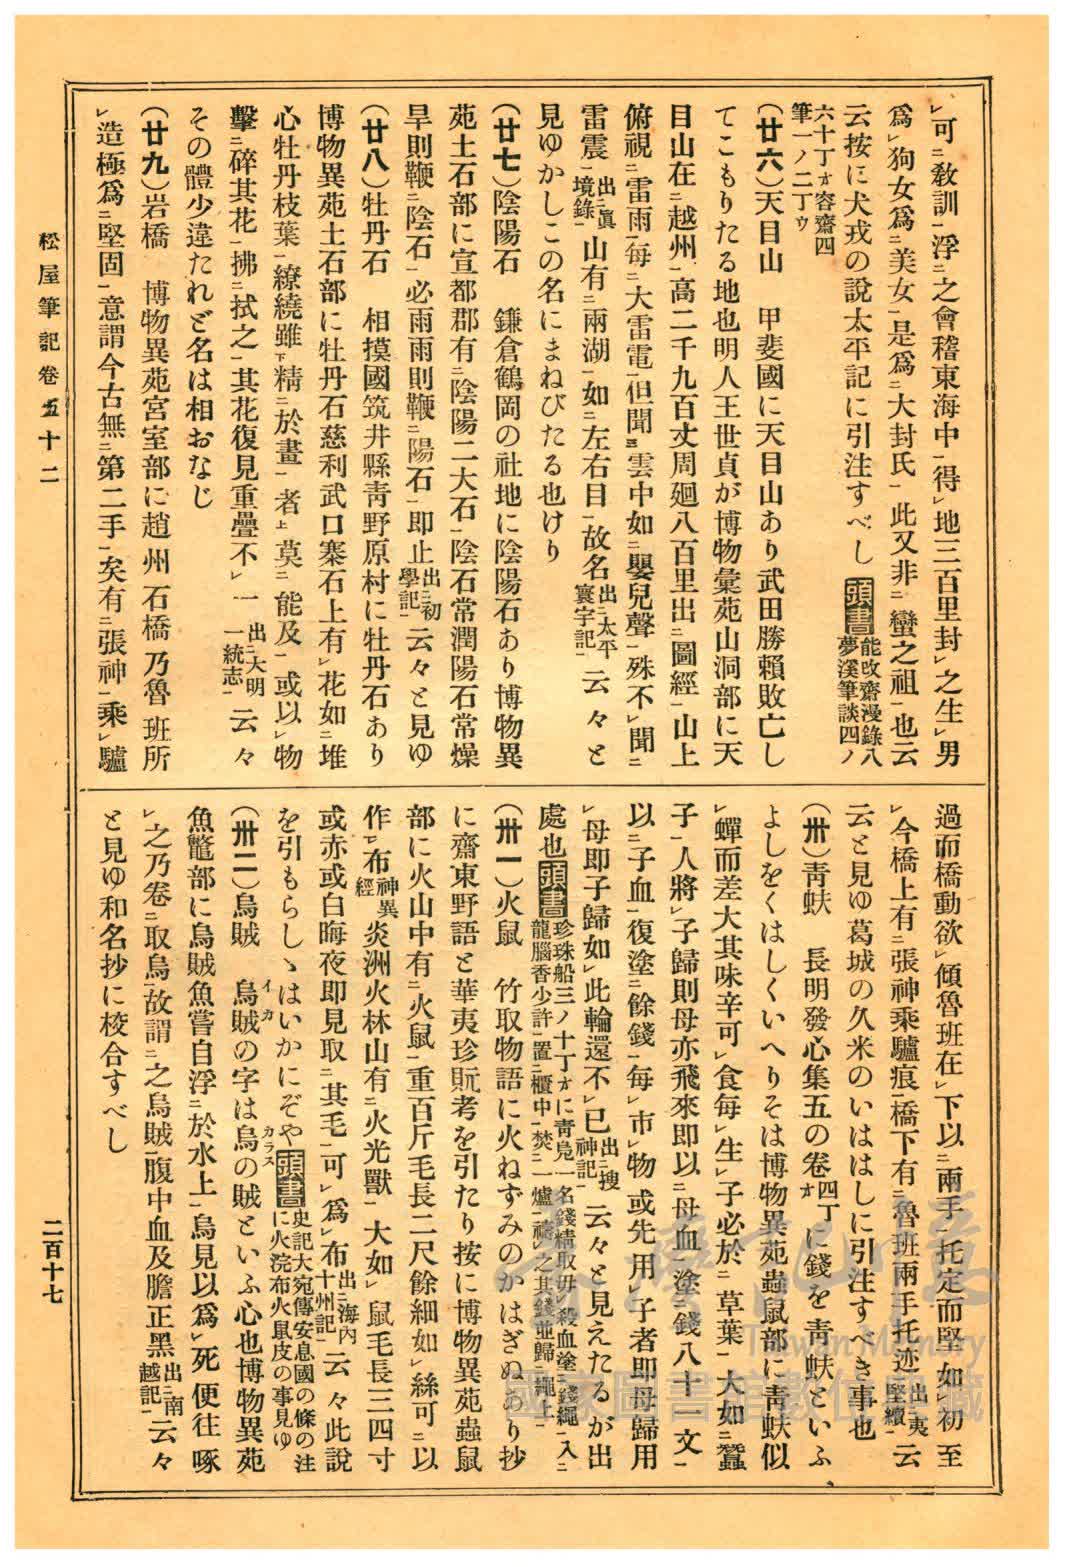 レ可ニ教訓一浮ニ之會稽東海中一得レ地三百里封レ之生レ男
爲レ狗女爲ニ美女一是爲ニ大封氏一此又非ニ蠻之祖一也云
云按に犬戎の說太平記に引注すべし 頭書 能改齋漫錄八夢溪筆談四ノ
六十丁オ容齋四筆一ノ二丁ウ
(廿六)天目山 甲斐國に天目山あり武田勝賴敗亡し
てこもりたる地也明人王世貞が博物彙苑山洞部に天
目山在ニ越州一高二千九百丈周廻八百里出ニ圖經一山上
俯視ニ雷雨一每ニ大雷電一但聞三雲中如ニ嬰兒聲一殊不レ聞ニ
雷震一出ニ眞境錄一山有ニ兩湖一如ニ左右目一故名出ニ太平寰宇記一云々と
見ゆかしこの名にまねびたる也けり
(廿七)陰陽石 鎌倉鶴岡の社地に陰陽石あり博物異
苑土石部に宣都郡有ニ陰陽二大石一陰石常潤陽石常燥
旱則鞭ニ陰石一必雨雨則鞭ニ陽石一即止出ニ初學記一云々と見ゆ
(廿八)牡丹石 相摸國筑井縣靑野原村に牡丹石あり
博物異苑土石部に牡丹石慈利武口寨石上有レ花如ニ堆
心牡丹枝葉一繚繞雖下精ニ於畫一者上莫ニ能及一或以レ物
擊ニ碎其花一拂ニ拭之一其花復見重疊不レ一出ニ大明一統志一云々
その體少違たれど名は相おなじ
(廿九)岩橋 博物異苑宮室部に趙州石橋乃魯班所
レ造極爲ニ堅固一意謂今古無ニ第二手一矣有ニ張神一乘レ驢
過而橋動欲レ傾魯班在レ下以ニ兩手一托定而堅如レ初至
レ今橋上有ニ張神乘驢痕一橋下有ニ魯班兩手托迹一出ニ夷堅續一云
云と見ゆ葛城の久米のいははしに引注すべき事也
(卅)靑蚨 長明發心集五の卷四丁オに錢を靑蚨といふ
よしをくはしくいへりそは博物異苑蟲鼠部に靑蚨似
レ蟬而差大其味辛可レ食每レ生レ子必於ニ草葉一大如ニ蠶
子一人將レ子歸則母亦飛來即以ニ母血一塗ニ錢八十一文一
以ニ子血一復塗ニ餘錢一每レ市レ物或先用レ子者即母歸用
レ母即子歸如レ此輪還不レ已出ニ搜神記一云々と見えたるが出
處也 頭書 珍珠船三ノ十丁オに靑鳧一名錢精取毋レ殺血塗ニ錢繩一入ニ龍腦香少許一置ニ櫃中一焚ニ一爐一禱レ之其錢並歸ニ繩上一
(卅一)火鼠 竹取物語に火ねずみのかはぎぬあり抄
に齋東野語と華夷珍玩考を引たり按に博物異苑蟲鼠
部に火山中有ニ火鼠一重百斤毛長二尺餘細如レ絲可ニ以
作レ布神異經炎洲火林山有ニ火光獸一大如レ鼠毛長三四寸
或赤或白晦夜即見取ニ其毛一可レ爲レ布出ニ海內十州記一云々此說
を引もらしゝはいかにぞや 頭書 史記大宛傳安息國の條の注に火浣布火鼠皮の事見ゆ
(卅二)烏賊 烏賊イカの字は烏カラスの賊といふ心也博物異苑
魚鼈部に烏賊魚嘗自浮ニ於水上一烏見以爲レ死便往啄
レ之乃卷ニ取烏一故謂ニ之烏賊一腹中血及膽正黑出ニ南越記一云々
と見ゆ和名抄に校合すべし
松屋筆記卷五十二
二百十七
臺灣記憶
Taiwan Memory
國家圖書館數位典藏